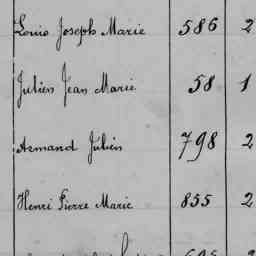 Louis Joseph Marie 586 2
Julien Jean Marie 58 1
Armand Julien 798 2
Henri Pierre Marie 855 2